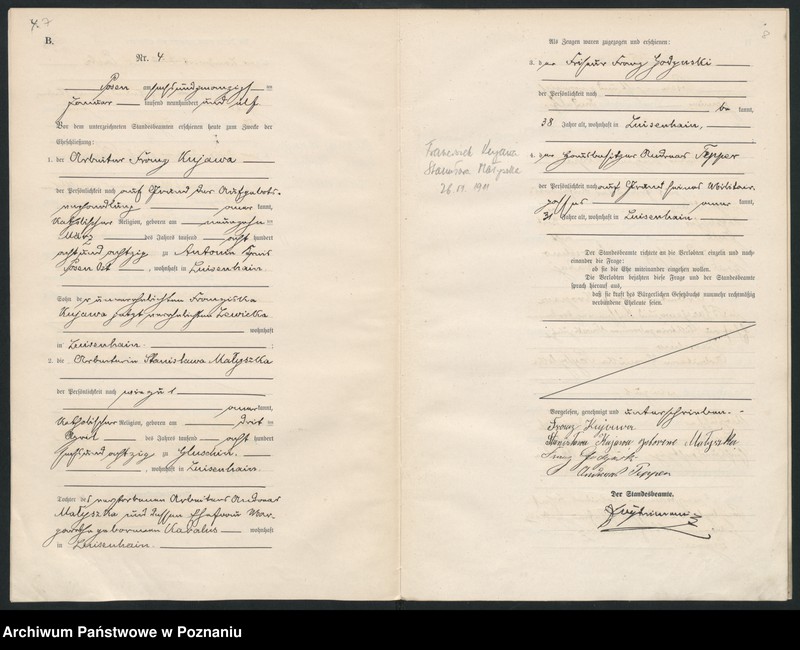 4. 7
B.
Nr. 4.
Posen am sechsundzwanzigsten
Januar tausend neunhundert und elf
Vor dem unterzeichneten Standesbeamten erschienen heute zum Zwecke der
Eheschließung:
1. der Arbeiter Franz Kujawa
der Persönlichkeit nach auf Grund der Aufgebots-
verhandlung anerkannt,
katholischer Religion, geboren am neunzehnten
März des Jahres tausend acht hundert
achtundachtzig zu Antonin, Kreis
Posen Ost, wohnhaft in Luisenhain
Sohn der unverehelichten Franziska
Kujawa jetzt verehelichten Lewicka
wohnhaft
in Luisenhain ;
2. die Arbeiterin Stanislawa Małyszka
der Persönlichkeit nach wie zu 1
anerkannt,
katholischer Religion, geboren am dritten
April des Jahres tausend acht hundert
sechsundachtzig zu Gluschin,
, wohnhaft in Luisenhain
Tochter des verstorbenen Arbeiters Andreas
Małyszka und dessen Ehefrau Mar-
garethe geborenen Kabalus wohnhaft
in Luisenhain.
8
Als Zeugen waren zugezogen und erschienen:
3. der Friseur Franz
der Persönlichkeit nach
bekannt,
38 Jahre alt, wohnhaft in Luisenhain,
4. der Hausbesitzer Andreas Tepper
der Persönlichkeit nach auf Grund seines Militär-
passes anerkannt,
31 Jahre alt, wohnhaft in Luisenhain.
Der Standesbeamte richtete an die Verlobten einzeln und nach-
einander die Frage:
ob sie die Ehe miteinander eingehen wollen.
Die Verlobten bejahten diese Frage und der Standesbeamte
sprach hierauf aus,
daß sie kraft des Bürgerlichen Gesetzbuchs nunmehr rechtmäßig
verbundene Eheleute seien.
Franciszek Kujawa
Stanisława Małyszka
1911
Vorgelesen, genehmigt und unterschrieben.
Franz Kujawa
Stanislawa Kujawa geborene Małyszka
Andreas Tepper
Der Standesbeamte.
Archiwum Państwowe w Poznaniu